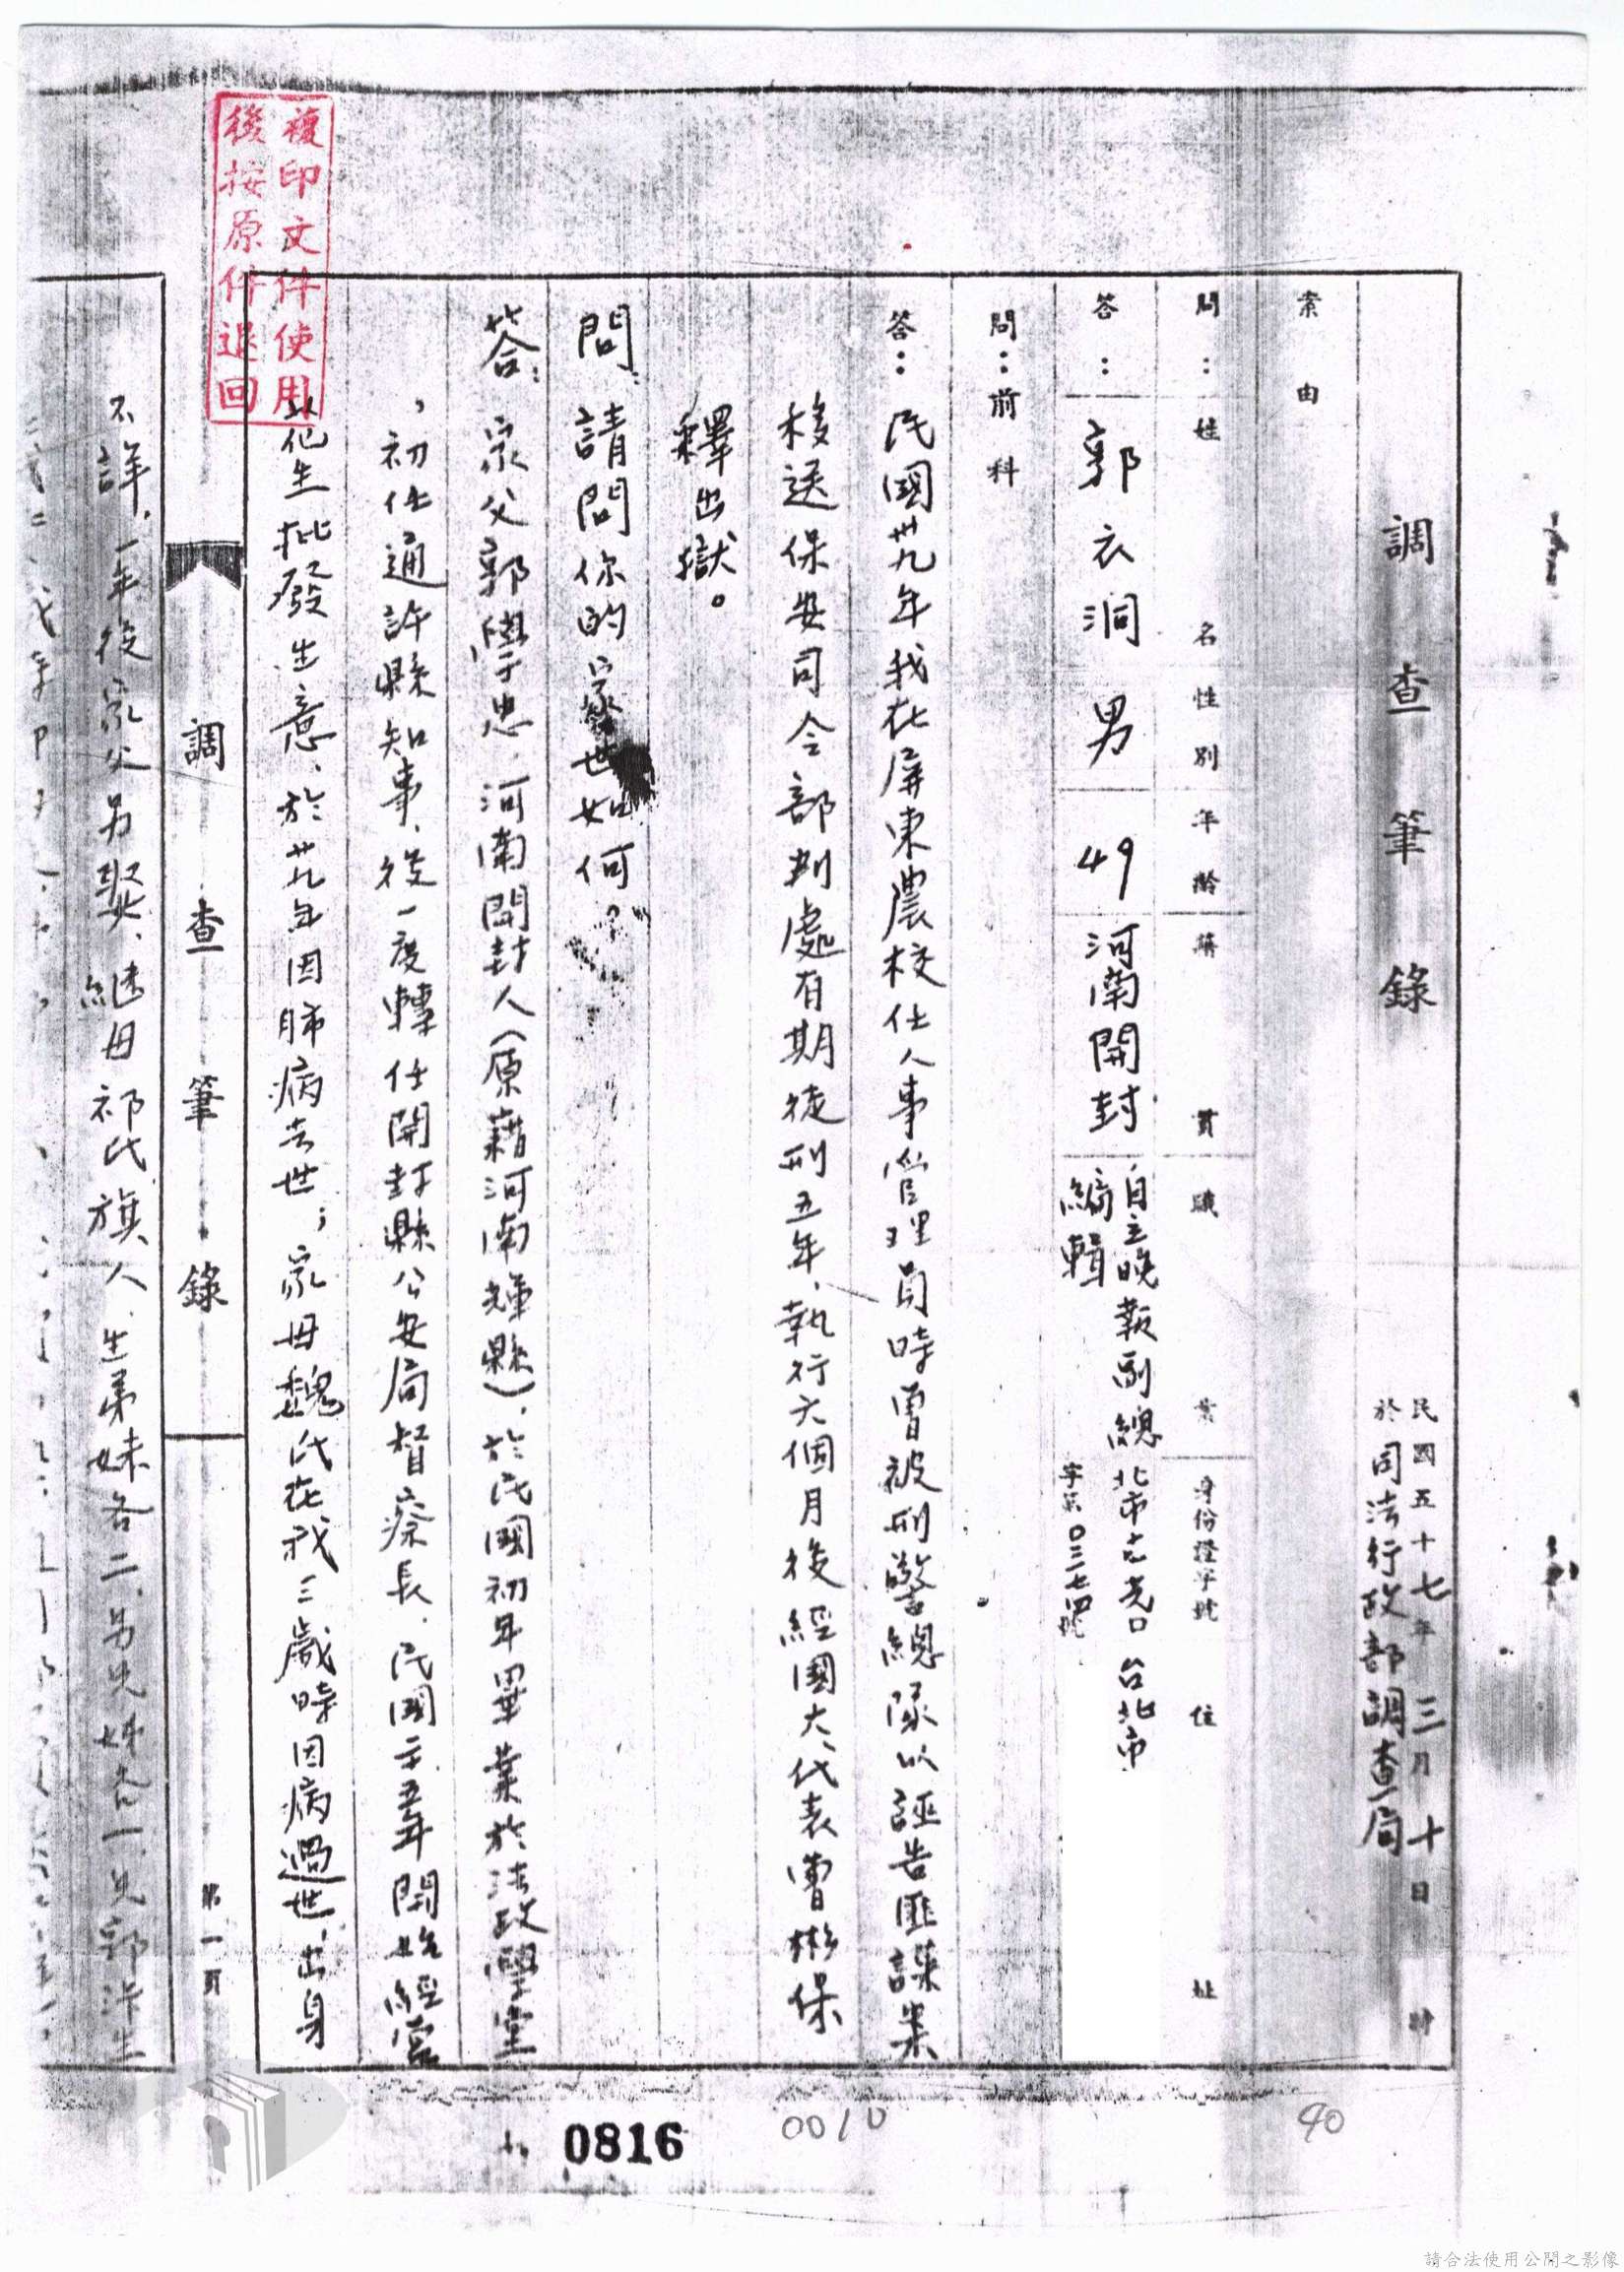 調查筆錄
民國五十七年三月十日 時
於司法行政部調查局
案由
問：姓名 性別 年齡 籍貫 職業 身份證字號 住址
答：郭衣洞 男 49 河南開封 自立晚報副總編輯 台北市
問：前科
答：民國卅九年我在屏東農校任人事管理員時曾被刑警總隊以誣告匪諜案
移送保安司令部判處有期徒刑五年，執行六個月後經國大代表曹彬保
釋出獄。
問：請問你的家世如何？
答：家父郭學忠，河南開封人（原籍河南輝縣），於民國初年畢業於法政學堂
，初任通許縣知事，後一度轉任開封縣公安局督察長，民國二五年開始經營
花生批發生意，於廿九年因肺病去世；家母魏氏在我三歲時因病過世，出身
調查筆錄
第一頁
不詳，一年後家父另娶，繼母祁氏旗人，生弟妹各二，另兄姊各一，兄郭
複印文件使用
後按原件退回
0816
0010
90
請合法使用公開之影像